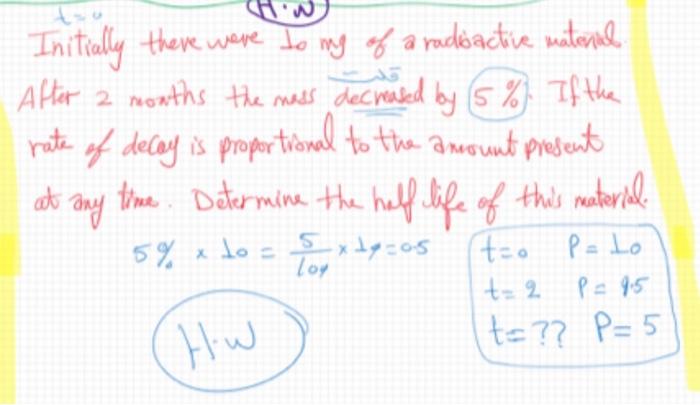 H.W
t=0
Initially there were 10 mg of a radioactive material.
قلت
After 2 months the mass decreased by 5%. If the
rate of decay is proportional to the amount present
at any time. Determine the half life of this material.
5% × 10 = 5/100 × 10 = 0.5
t=0 P= 10
t= 2 P= 9.5
t= ?? P= 5
H.W